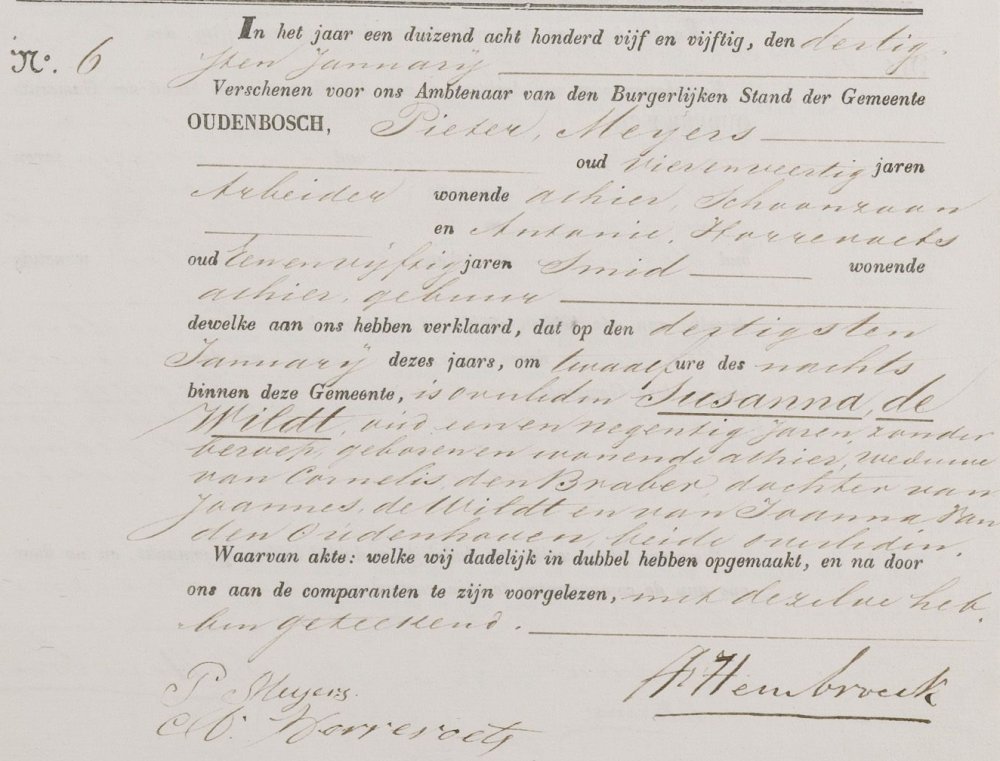 In het jaar een duizend acht honderd vijf en vijftig, den dertig
sten January
N°. 6
Verschenen voor ons Ambtenaar van den Burgerlijken Stand der Gemeente
OUDENBOSCH, Pieter, Meyers
oud vierenveertig jaren
Arbeider wonende alhier, Schoonzoon
en Antonie, Horrevoets
oud eenenvijftig jaren Smid wonende
alhier, gebuur
dewelke aan ons hebben verklaard, dat op den dertigsten
January dezes jaars, om twaalf ure des nachts
binnen deze Gemeente, is overleden Susanna, de
Wildt, oud eenen negentig Jaren, zonder
beroep, geboren en wonende alhier, weduwe
van Cornelis, den Braber, dochter van
Joannes, de Wildt en van Joanna Van
den Oudenhoven, beide overleden.
Waarvan akte: welke wij dadelijk in dubbel hebben opgemaakt, en na door
ons aan de comparanten te zijn voorgelezen, met dezelve heb
ben geteekend.
P Meyers.
Horrevoets